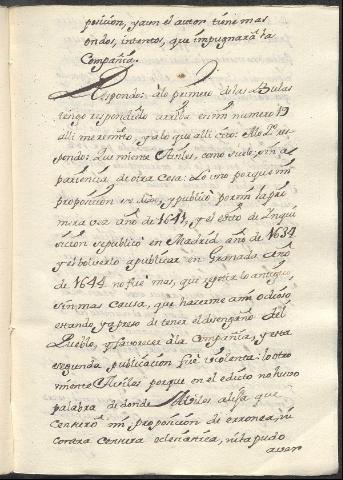 posicion, y aun el autor tiene mas
ondos, intentos, que impugnar â la
Compañia.
Respondo: âlo primero de las Bulas
tengo respondido arriba en mi numero 19
alli me remito, y a lo que alli cito: Alo 2º. res-
pondo: Que miente Aviles, como suele, sin a-
pariencia de otra cosa: Lo uno porque mi
proposicion se dijo, y publicò por mi la pri-
mera vez año de 1611, y el edicto de Ynqui
sicion se publicò en Madrid año de 1634
y el bolverlo a publicar en Granada año
de 1644 no fue mas, que repetir lo antiguo
sin mas causa, que hacerme a mi odioso
estando, ya preso de tener el desengaño del
Pueblo, y favorecer â la Compañia, y esta
segunda publicacion fuè violenta: lo otro
miente Aviles porque en el edicto no huvo
palabra de donde Aviles alega que
censurò mi proposicion de erronea, ni
contra censura eclesiastica, ni la pudo
aver